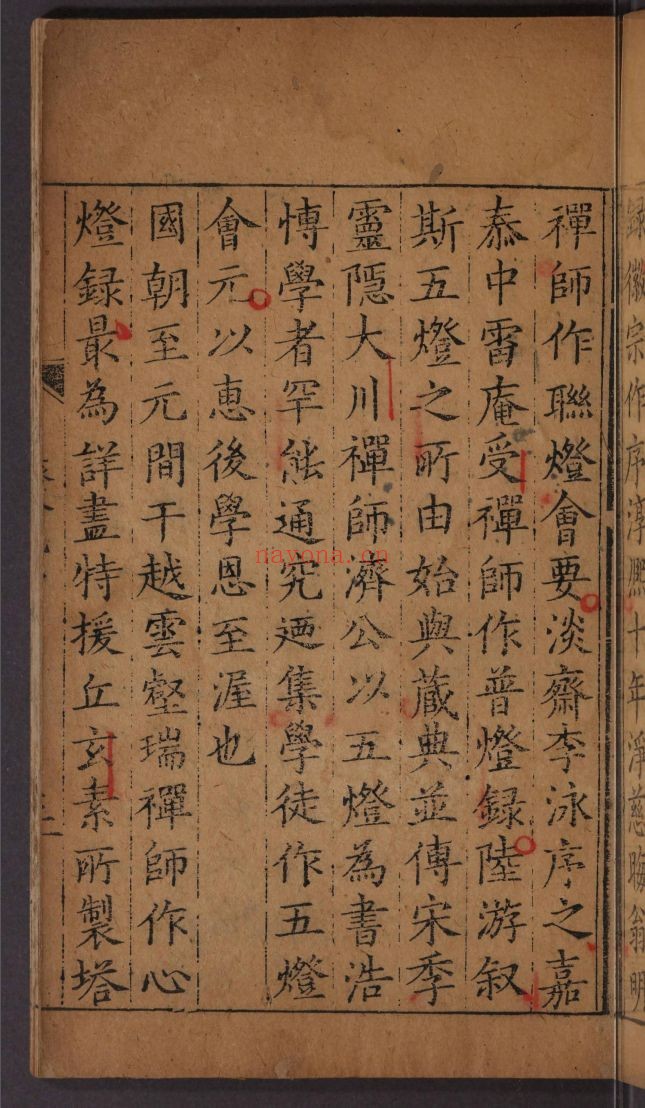 録徽宗作序淳熈十年淨慈晦翁明
禪師作聯燈會要淡齋李泳序之嘉
泰中雷庵受禪師作普燈録陸游叙
斯五燈之所由始與藏典並傳宋季
靈隠大川禪師濟公以五燈為書浩
愽學者罕能通究廼集學徒作五燈
會元以恵後學恩至渥也
國朝至元間干越雲壑瑞禪師作心
燈録最為詳盡特援丘玄素所製塔
nayona.cn